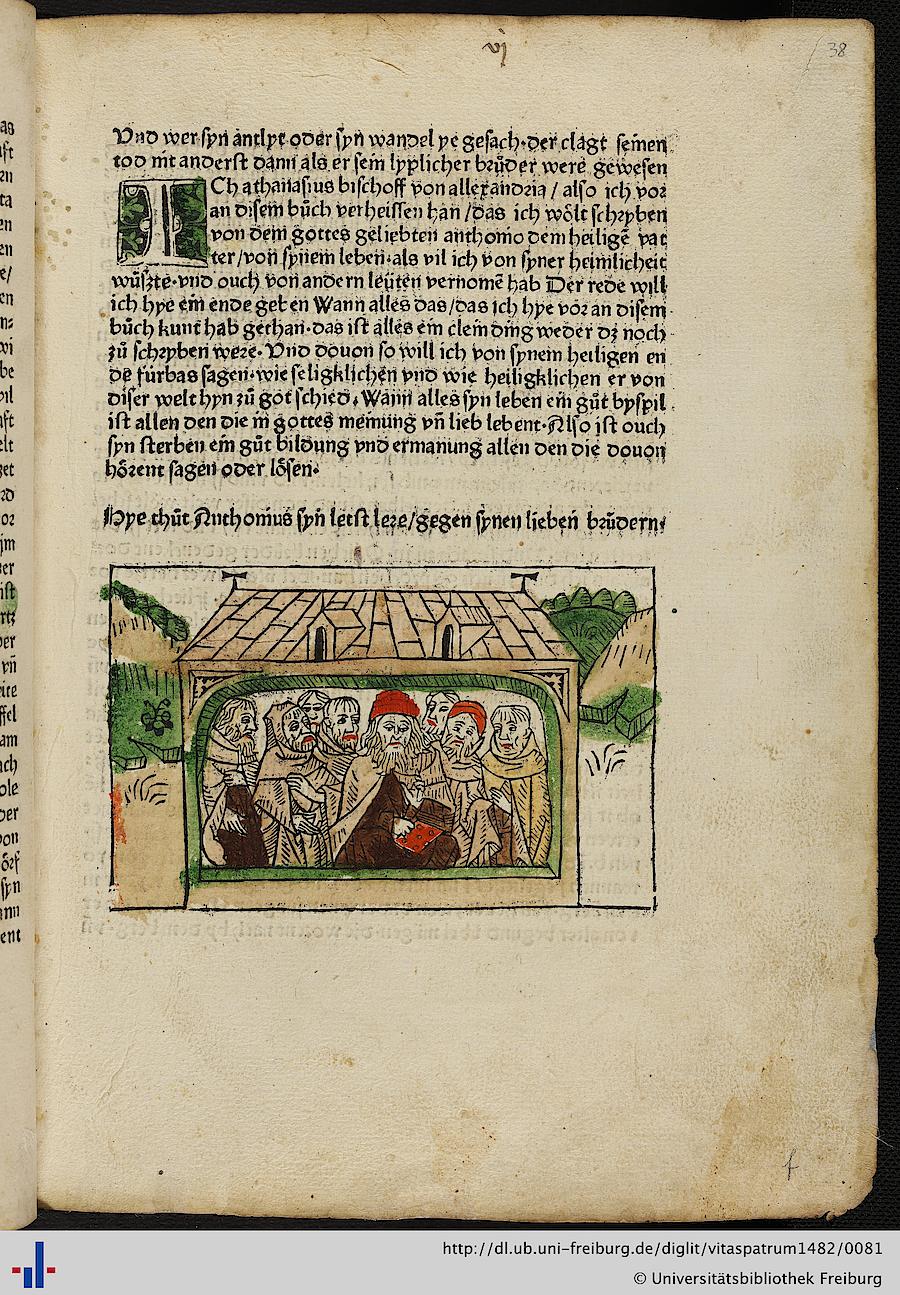 vj
38
Vnd wer syn antlyt oder syn wandel ye gesach·der clagt seinen
tod nit anderst dann als er sein lyplicher bruͤder were gewesen
ICh athanasius bischoff von allexandria / also ich vor
an disem buͤch verheissen han /das ich woͤlt schryben
von dem gottes geliebten anthonio dem heiligē vat
ter /von synem leben·als vil ich von syner heimlicheit
wuͤszte·vnd ouch von andern leuͤten vernomē hab Der rede will
ich hye ein ende geben Wann alles das/das ich hye vor an disem
buͤch kunt hab gethan·das ist alles ein clein ding weder dz noch
zuͤ schryben were· Vnd douon so will ich von synem heiligen en
de fúrbas sagen·wie seligklichen vnd wie heiligklichen er von
diser welt hyn zuͤ got schied· Wann alles syn leben ein guͤt byspil
ist allen den die in gottes meinung vn̄ lieb lebent·Also ist ouch
syn sterben ein guͤt bildung vnd ermanung allen den die douon
hoͤrent sagen oder loͤsen·
Hye thuͤt Anthonius syn letst lere/gegen synen lieben bruͤdern·
f
as
ft
rn
ta
en
en
e/
en
n⸗
wi
be
vil
ft
elt
zet
rd
or
im
er
ist
rtz
er
vn̄
eite
ffel
am
ach
ole
der
von
oͤrf
syn
ann
ent
http://dl.ub.uni-freiburg.de/diglit/vitaspatrum1482/0081
© Universitätsbibliothek Freiburg